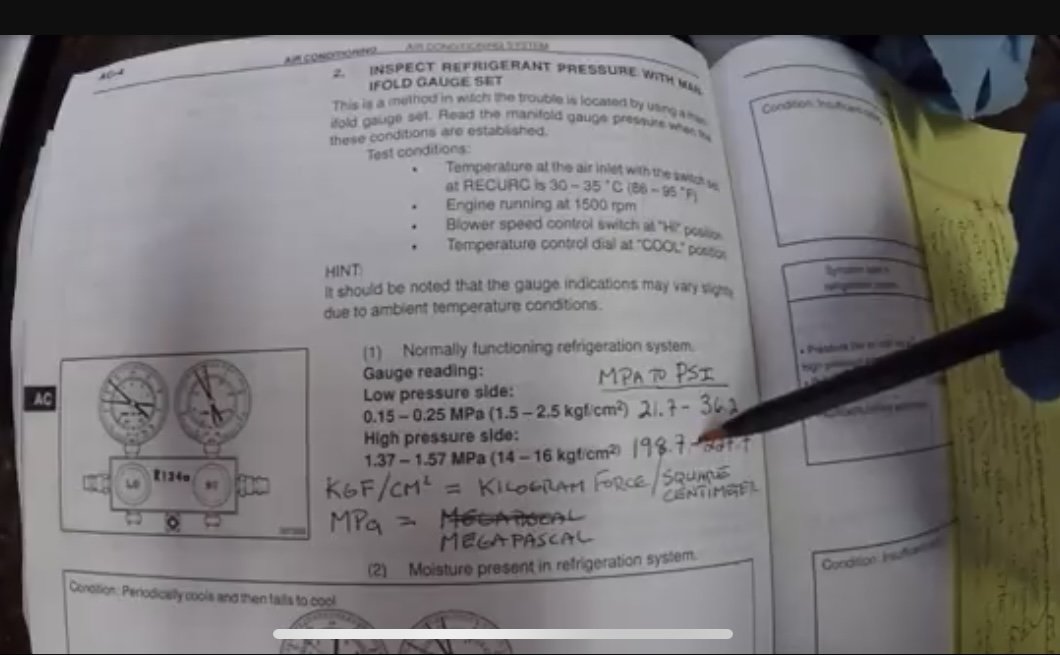 AC-4
AIR CONDITIONING
AIR CONDITIONING SYSTEM
2. INSPECT REFRIGERANT PRESSURE WITH MAN
IFOLD GAUGE SET
This is a method in witch the trouble is located by using a man
ifold gauge set. Read the manifold gauge pressure when the
these conditions are established.
Test conditions:
• Temperature at the air inlet with the switch set
at RECURC is 30 – 35 °C (86 – 95 °F)
• Engine running at 1500 rpm
• Blower speed control switch at "HI" position
• Temperature control dial at "COOL" position
HINT:
It should be noted that the gauge indications may vary slightly
due to ambient temperature conditions.
(1) Normally functioning refrigeration system.
Gauge reading:
MPA TO PSI
Low pressure side:
0.15 – 0.25 MPa (1.5 – 2.5 kgf/cm²) 21.7 - 36.2
High pressure side:
1.37 – 1.57 MPa (14 – 16 kgf/cm²) 198.7 -
KGF/CM² = KILOGRAM FORCE / SQUARE
CENTIMETER
MPa =
MEGAPASCAL
(2) Moisture present in refrigeration system.
AC
LO
R134a
HI
Condition: Periodically cools and then fails to cool
Condition: Insufficient
Condition: Insufficient